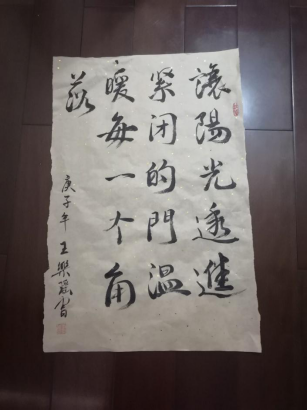 讓陽光透進
紧闭的門温
暖每一个角
落
庚子年
王樂
書